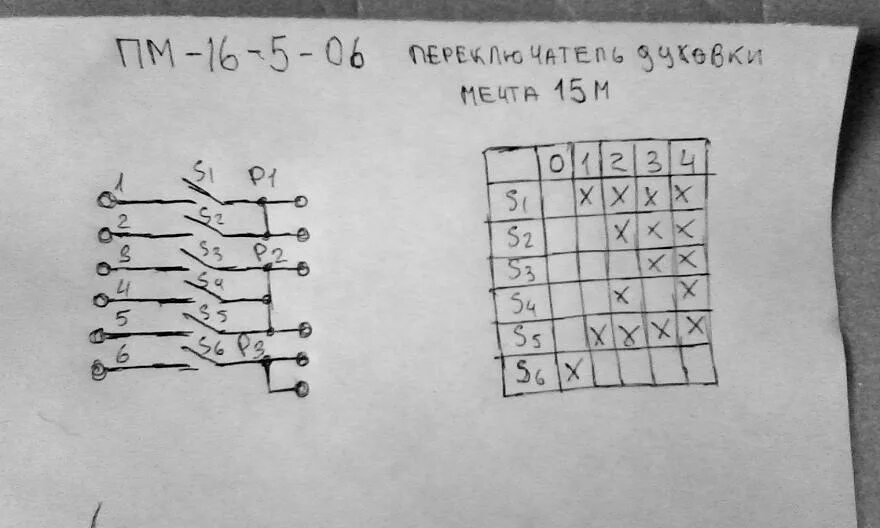 ПМ-16-5-06 ПЕРЕКЛЮЧАТЕЛЬ ДУХОВКИ
МЕЧТА 15М
1 S1 P1
2 S2
3 S3 P2
4 S4
5 S5
6 S6 P3
0 1 2 3 4
S1 X X X X
S2 X X X
S3 X X
S4 X X
S5 X X X X
S6 X